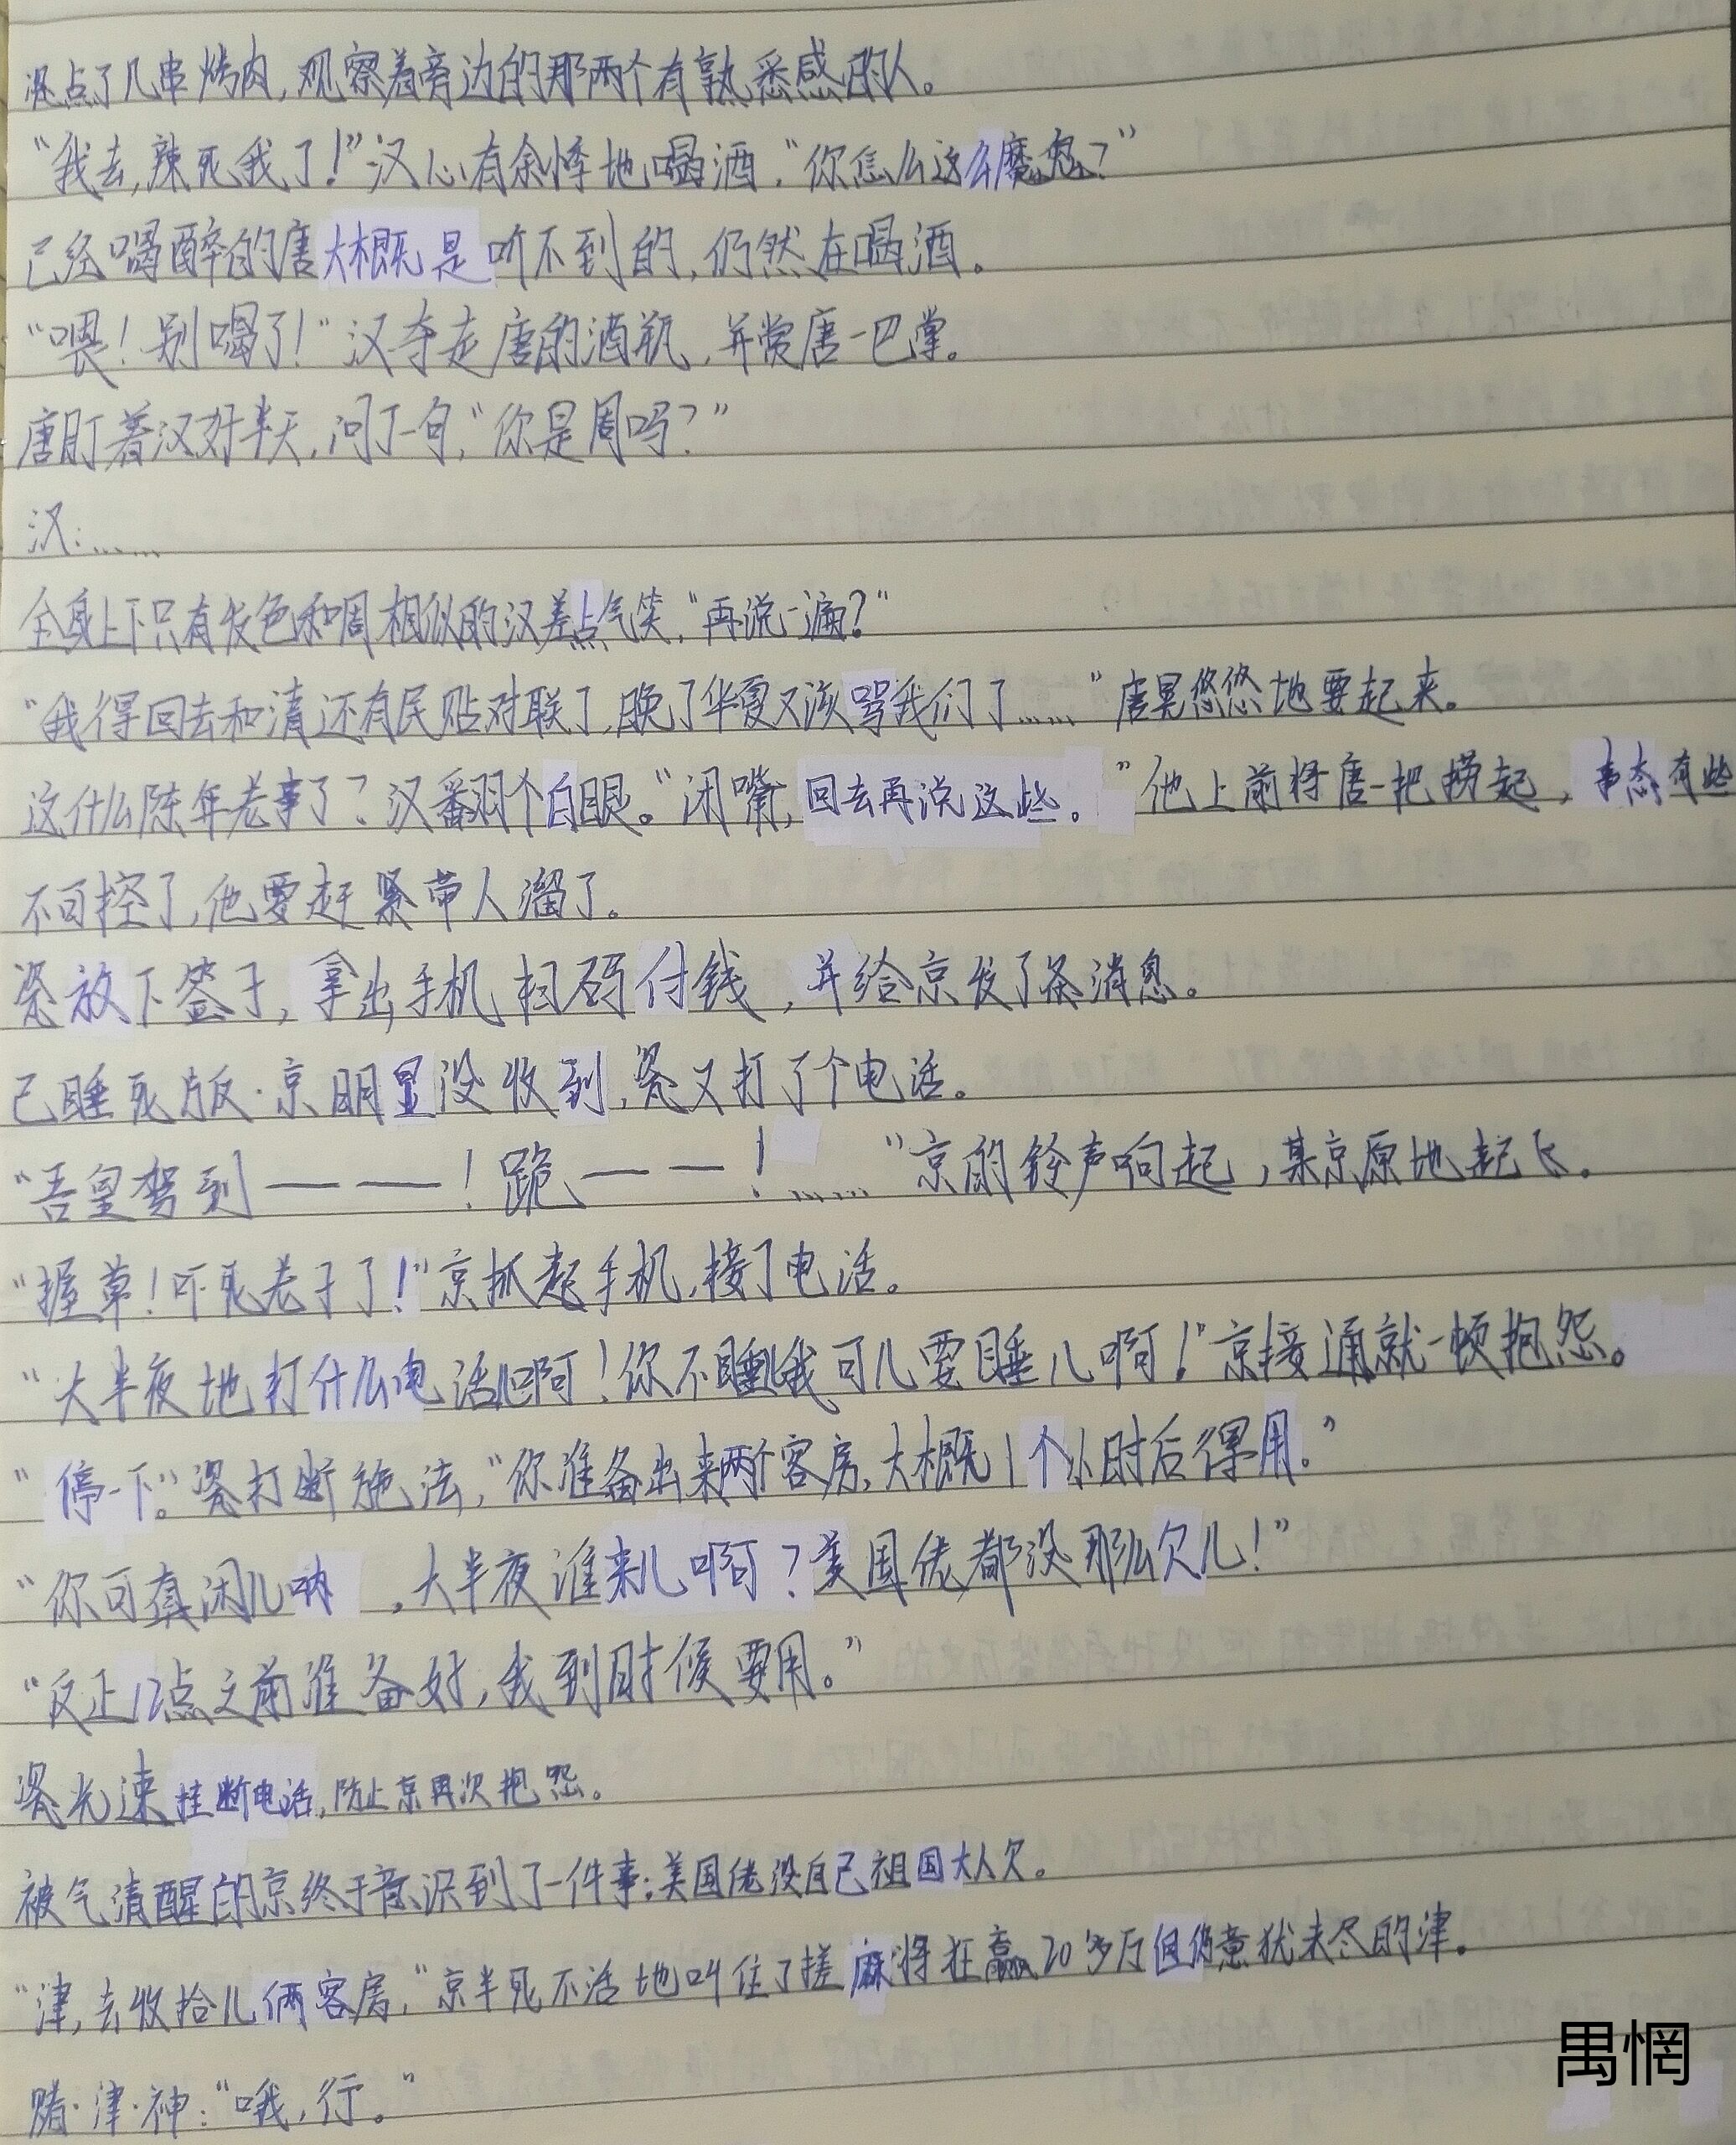 瓷点了几串烤肉,观察着旁边的那两个有熟悉感的人。
“我去,辣死我了!”汉心有余悸地喝酒,“你怎么这么魔鬼?”
已经喝醉的唐大概是听不到的,仍然在喝酒。
“喂!别喝了!”汉夺走唐的酒瓶,并赏唐一巴掌。
唐盯着汉好半天,问了一句,“你是周吗?”
汉:……
全身上下只有发色和周相似的汉差点气笑,“再说一遍?”
“我得回去和清还有民贴对联了,晚了华夏又该骂我们了……”唐晃悠悠地要起来。
这什么陈年老事了?汉翻个白眼。“闭嘴,回去再说这些。”他上前将唐一把捞起,事态有些
不可控了,他要赶紧带人溜了。
瓷放下签子,拿出手机扫码付钱,并给京发了条消息。
已睡死版·京明显没收到,瓷又打了个电话。
“吾皇驾到———!跪——!……”京的铃声响起,某京原地起飞。
“握草!吓死老子了!”京抓起手机,接了电话。
“大半夜地打什么电话儿啊!你不睡我可儿要睡儿啊!”京接通就一顿抱怨。
“停一下。”瓷打断施法,“你准备出来两个客房,大概1个小时后得用。”
“你可真闲儿呐,大半夜谁来儿啊?美国佬都没那么欠儿!”
“反正12点之前准备好,我到时候要用。”
瓷光速挂断电话,防止京再次抱怨。
被气清醒的京终于意识到了一件事:美国佬没自己祖国大人欠。
“津,去收拾儿俩客房,”京半死不活地叫住了搓麻将狂赢20多万但仍意犹未尽的津。
赌·津·神:“哦,行。”
禺惘